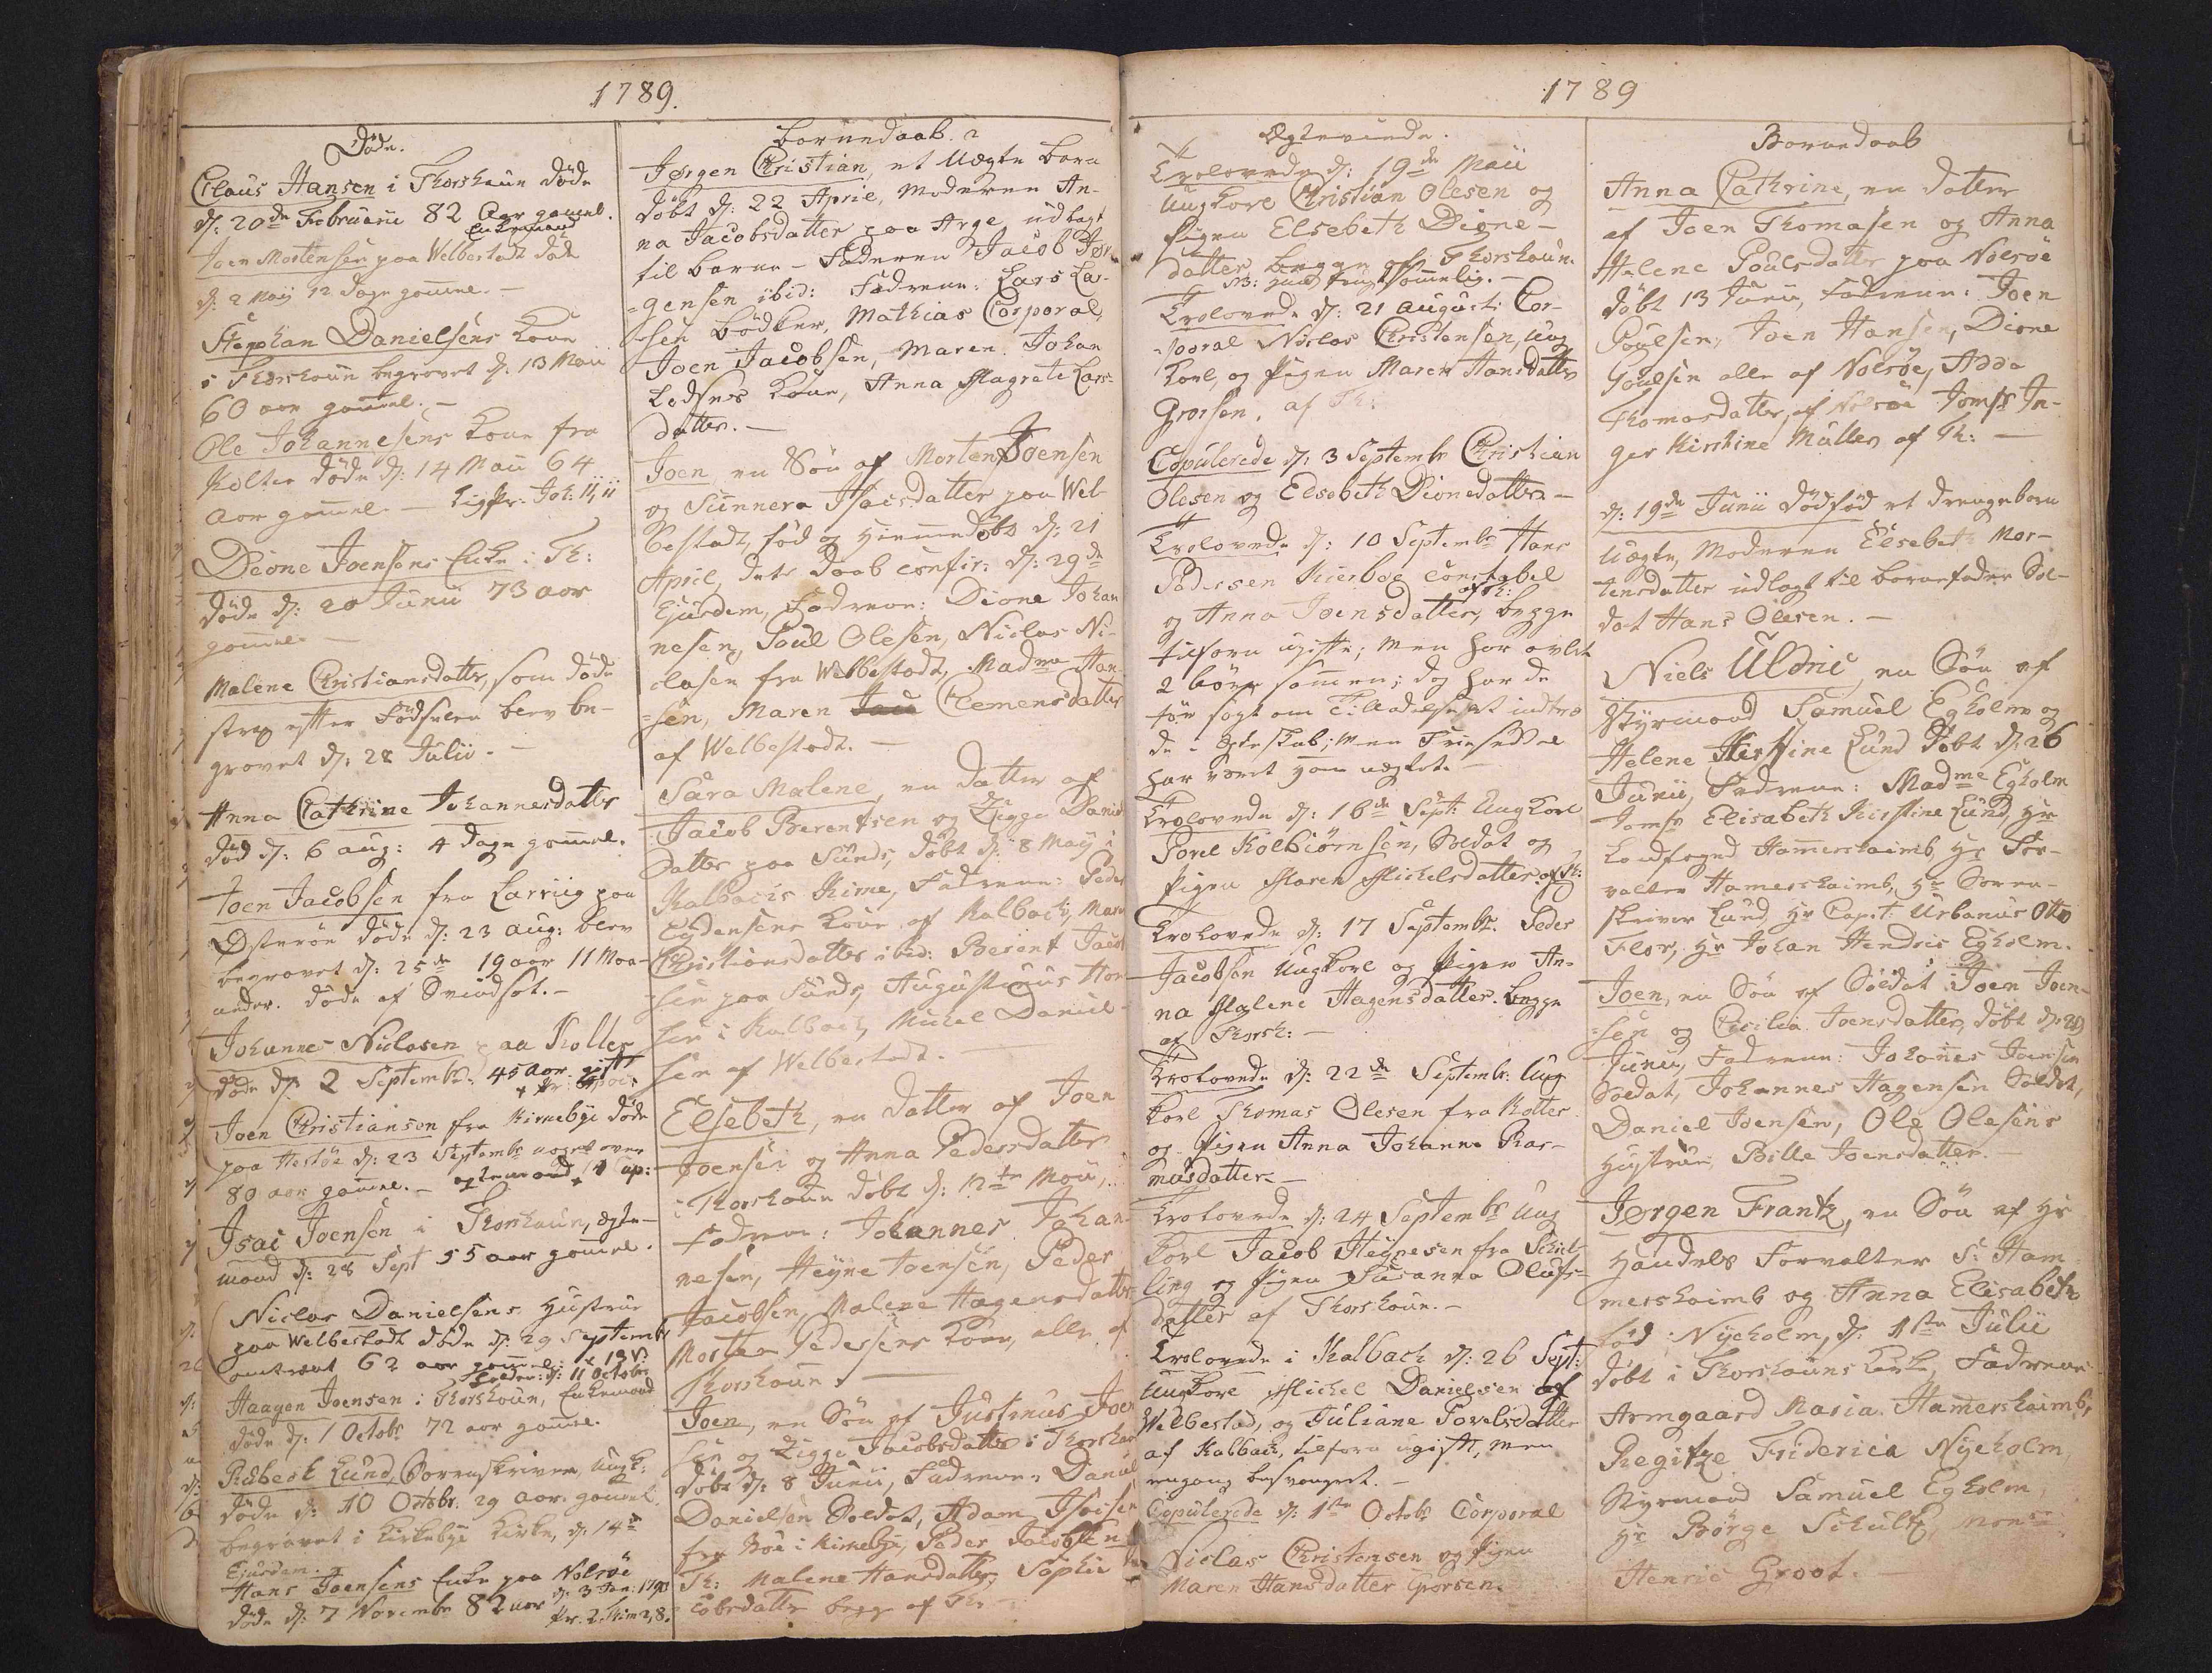 1789.
Döde.
Claus Hansen i Thorshaun döde
d: 20de Februarii 82 Aar gamel.
Enkemand
Joen Mortensen paa Welbestadt döde
d: 2 Maij 12 Dage gammel. –
Stephan Danielsens Kone
i Thorshaun begravet d: 13 Maii
60 aar gammel. –
Ole Johannesens Kone fra
Kolter döde d: 14 Maii 64
Aar gammel. – Ligpr. Joh: 11,11
Dione Joensens Enke i Th:
döde d: 20 Junii 73 aar
gammel –
Malene Christiansdatter, som döde
strax efter Födselen blev be-
gravet d: 28 Julii. –
Anna Cathrine Johannesdatter
död d: 6 aug: 4 dage gammel.
Joen Jacobsen fra Larviig paa
Österöe döde d: 23 aug: blev
begravet d: 25de 19 aar 11 Maa-
neder. döde af Svindsot. –
Johannes Niclasen paa Kolter
döde d: 2 Septembr: 45 Aar gift
Joen Christiansen fra Kirkebye döde
paa Hestöe d: 23 Septembr noget over
80 aar gammel. – egtemand
Isac Joensen i Thorshaun, egte-
mand d: 28 Sept 55 aar gammel.
Niclas Danielsens Hustrue
paa Welbestadt döde d: 29 Septembr
omtrent 62 aar gammel:
d: 11 October
Haagen Joensen i Thorshaun, Enkemand
döde d: 1 Octobr 72 aar gamel.
Rechbech Lund, Sorenskriver, ungk:
döde d: 10 Octobr. 29 aar gamel
begravet i Kirkebye Kirke, d: 14de
Ejusdem.
Hans Joensens Enke paa Nolsöe
döde d: 7 Novembr 82 aar d: 3 Jan: 1790
Pr. 2. Tim 2,8.
Bornedaab
Jørgen Christian, et Uægte barn
döbt d: 22 April, Moderen An-
na Jacobsdatter paa Arge, udlagt
til barne-Faderen Jacob Jør-
gensen ibid: Fadrene: Lars Lar-
sen Bödker, Mathias Corporal,
Joen Jacobsen, Maren Johan
Lodses Kone, Anna Magrete Lars-
datter. –
Joen, en Sön af Morten Joensen
og Sunnera Isacsdatter paa Wel-
bestadt, föd og hiemmedöbt d: 21
April, dets daab confir: d: 29de
Ejusdem, Fadrene: Dione Johan
nesen, Poul Olesen, Niclas Ni-
clasen fra Welbestadt, Madme Han-
sen, Maren Clemensdatter
af Welbestadt. –
Sara Malene, en datter af
Jacob Berentsen og Zigga Daniels
datter paa Sund, döbt d: 8 Maij i
Kalbachs Kirke, Fadrene: Peder
Ejdensens Kone af Kalbach, Maren
Christiansdatter ibid: Berent Jacob
sen paa Sund, Augustinus Han-
sen i Kalbach, Michel Daniel-
sen af Welbestadt. –
Elsebeth, en datter af Joen
Joensen og Anna Pedersdatter
i Thorshaun döbt d: 12te Maii,
Fadrene: Johannes Johan-
nesen, Heyne Joensen, Peder
Jacobsen, Malene Hagensdatter
Morten Pedersens Kone, alle af
Thorshaun. –
Joen, en Sön af Justinus Joen
sen og Zigga Jacobsdatter i Thorshaun
döbt d: 8 Junii, Fadrene: Daniel
Danielsen Soldat, Adam Isacsen
fra Böe i Kirkebye, Peder Jacobsen
Th: Malene Hansdatter, Sophie
cobsdatter begge af Th:
1789
Egteviede.
Trolovede d: 19de Maii
Ungkarl Christian Olesen og
Pigen Elsebeth Dione-
datter begge af Thorshaun.
NB: hun frugtsommelig. –
Trolovede d: 21 Augusti Cor-
poral Niclas Christensen, Ung
karl, og Pigen Maren Hansdatter
Grorsen. af Th:
Copulerede d: 3 Septembr Christian
Olesen og Elsebeth Dionedatter –
Trolovede d: 10 Septembr Hans
Pedersen Kierboe Constabel
og Anna Joensdatter, af Th: begge
tilforn ugifte; men har avlet
2 börn sammen; dog har de
för sögt om Tilladelse at indtræ
de i Egteskab; men Friesedel
har været ham negtet. –
Trolovede d: 16de Sept: Ungkarl
Povel Kolbiörnsen, Soldat og
Pigen Maren Michelsdatter. af Th:
Trolovede d: 17 Septembr. Peder
Jacobsen Ungkarl og Pigen An-
na Malene Hagensdatter. begge
af Thorsh: –
Trolovede d: 22de Septembr: Ung
karl Thomas Olesen fra Kolter
og Pigen Anna Johanna Ras-
musdatter. –
Trolovede d: 24 Septembr Ung
karl Jacob Heynesen fra Schel-
ling og Pigen Susanna Olufs-
datter af Thorshaun. –
Trolovede i Kalbach d: 26 Sept:
Ungkarl Michel Danielsen af
Welbestad, og Juliane Povelsdatter
af Kalbach, tilforn ugift, men
engang besvangret. –
Copulerede d: 1ste Octobr Corporal
Niclas Christensen og Pigen
Maren Hansdatter Grorsen.
1789
Bornedaab
Anna Cathrine, en datter
af Joen Thomasen og Anna
Helene Poulsdatter paa Nolsöe
döbt 13 Junii, Fadrene: Joen
Poulsen, Joen Hansen, Dione
Poulsen alle af Nolsöe, Adda
Thomasdatter, af Nolsöe Jomfr In-
ger Kirstine Müller af Th: –
d: 19de Junii dödföd et drengebarn
Uægte, Moderen Elsebeth Mor-
tensdatter udlagt til barnefader Sol-
dat Hans Olesen. –
Niels Uldric, en Sön af
Styrmand Samuel Egholm og
Helene Kirstine Lund döbt d: 26
Junii, Fadrene: Madme Egholm
Jomfr Elisabeth Kirstine Lund, Hr
Landfoged Hammershaimb Hr For-
valter Hamershaimb, Hr Soren-
skriver Lund, Hr Capit: Urbanus Otto
Flor, Hr Johan Hendric Egholm.
Joen, en Sön af Soldat Joen Joen-
sen og Cecilia Joensdatter, döbt d: 28
Junii, Fadrene: Johannes Joensen
Soldat, Johannes Hagensen Soldat,
Daniel Joensen, Ole Olesens
Hustrue, Bille Joensdatter. –
Jørgen Frantz, en Sön af Hr
Handels Forvalter S: Ham-
mershaimb og Anna Elisabeth
föd Nyeholm, d: 1ste Julii
döbt i Thorshauns Kirke, Fadrene
Armgaard Maria Hamershaimb,
Regitze Friderica Nyeholm,
Styrmand Samuel Egholm,
Hr Börge Schultz, Monsr
Henric Groot. –